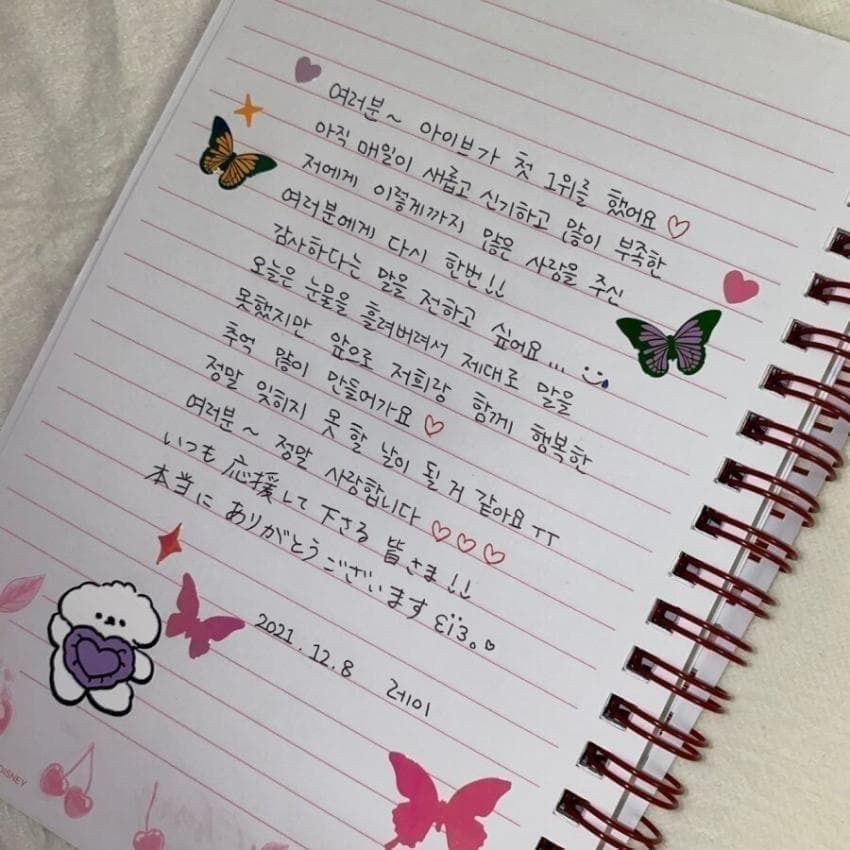 여러분~ 아이브가 첫 1위를 했어요♡
아직 매일이 새롭고 신기하고 많이 부족한
저에게 이렇게까지 많은 사랑을 주신
여러분에게 다시 한번!!
감사하다는 말을 전하고 싶어요...
오늘은 눈물을 흘려버려서 제대로 말을
못했지만 앞으로 저희랑 함께 행복한
추억 많이 만들어가요♡
정말 잊히지 못할 날이 될 거 같아요 ㅠㅠ
여러분~ 정말 사랑합니다♡♡♡
いつも応援して下さる皆さま!!
本当にありがとうございますεïз。♡
2021.12.8 레이
DISNEY